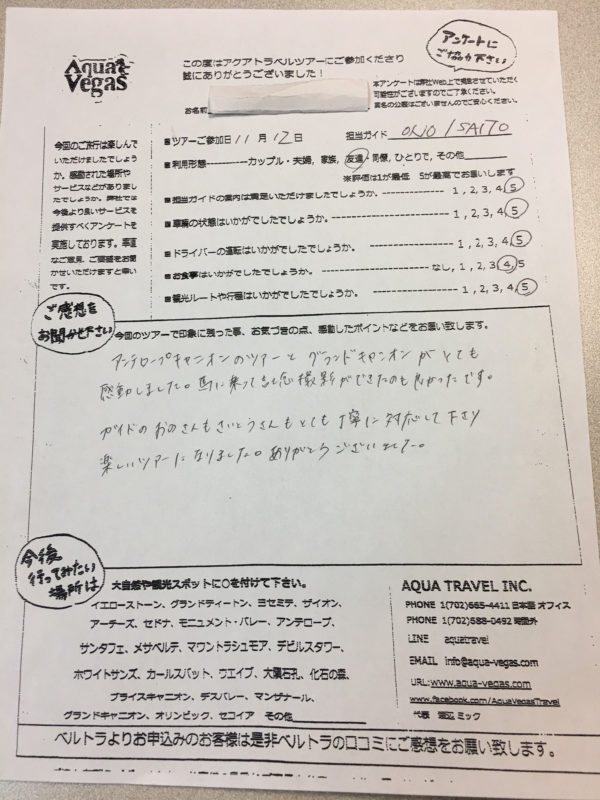 Aqua Vegas
この度はアクアトラベルツアーにご参加くださり
誠にありがとうございました！
アンケートに
ご協力下さい
本アンケートは弊社Web上で掲載させていただく
可能性がございますのでご了承ください。
実名の公表はございませんのでご安心ください。
お名前
■ツアーご参加日 11月 12日 担当ガイド ONO / SAITO
■利用形態----------カップル・夫婦, 家族, 友達・同僚, ひとりで, その他
※評価は1が最低 5が最高でお願いします
■担当ガイドの案内は満足いただけましたでしょうか。---------------- 1, 2, 3, 4, 5
■車輌の状態はいかがでしたでしょうか。---------------- 1, 2, 3, 4, 5
■ドライバーの運転はいかがでしたでしょうか。---------------- 1, 2, 3, 4, 5
■お食事はいかがでしたでしょうか。---------------- なし, 1, 2, 3, 4, 5
■観光ルートや行程はいかがでしたでしょうか。---------------- 1, 2, 3, 4, 5
今回のご旅行は楽しんで
いただけましたでしょう
か。感動された場所や
サービスなどがありまし
たでしょうか。弊社では
今後より良いサービスを
提供すべくアンケートを
実施しております。率直
なご意見、ご要望をお聞
かせいただけますと幸い
です。
ご感想を
お聞かせ下さい
今回のツアーで印象に残った事、お気づきの点、感動したポイントなどをお願い致します。
アンテロープキャニオンのツアーと グランドキャニオン がとても
感動しました。馬に乗って記念撮影ができたのも良かったです。
ガイドのおのさんもさいとうさんもとても丁寧に対応して下さり
楽しいツアーになりました。ありがとうございました。
今後
行ってみたい
場所は
大自然や観光スポットに○を付けて下さい。
イエローストーン、グランドティートン、ヨセミテ、ザイオン、
アーチーズ、セドナ、モニュメント・バレー、アンテロープ、
サンタフェ、メサベルテ、マウントラシュモア、デビルスタワー、
ホワイトサンズ、カールスバット、ウエイブ、大隕石孔、化石の森、
ブライスキャニオン、デスバレー、マンザナール、
グランドキャニオン、オリンピック、セコイア その他
AQUA TRAVEL INC.
PHONE 1(702)665-4411 日本語 オフィス
PHONE 1(702)588-0492 時間外
LINE aquatravel
EMAIL info@aqua-vegas.com
URL:www.aqua-vegas.com
www.facebook.com/AquaVegasTravel
代表 渡辺 ミック
ベルトラよりお申込みのお客様は是非ベルトラの口コミにご感想をお願い致します。